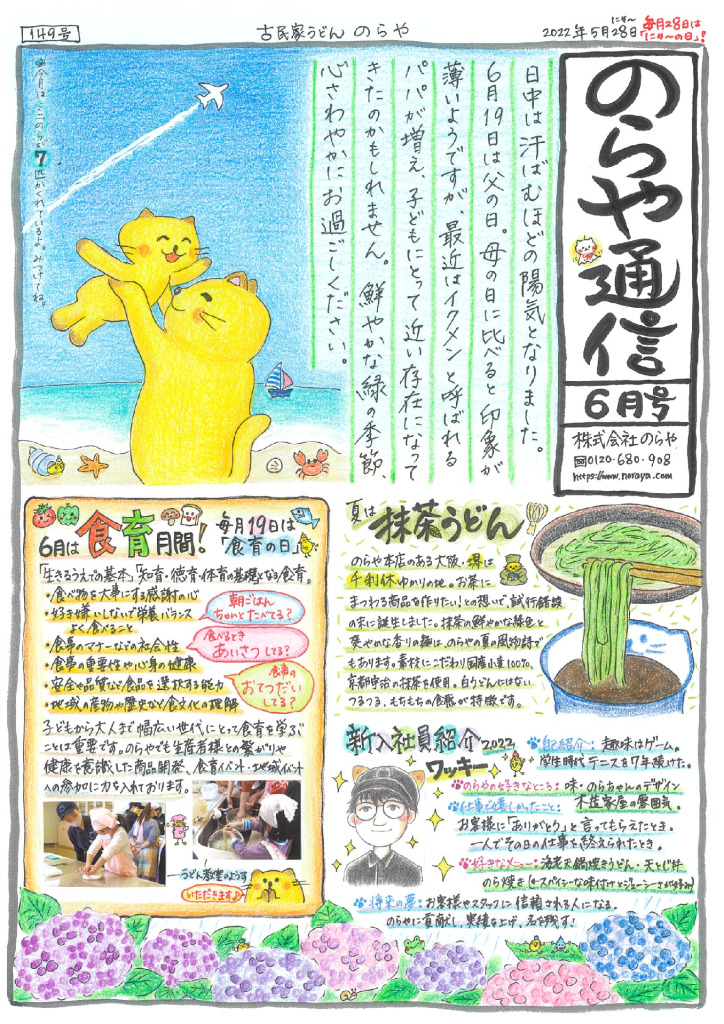 149号
古民家うどん のらや
にゃ〜
2022年5月28日
毎月28日は
「にゃ〜の日」!
のらや通信
6月号
株式会社のらや
0120-680-908
https://www.noraya.com
日中は汗ばむほどの陽気となりました。
6月19日は父の日。母の日に比べると印象が
薄いようですが、最近はイクメンと呼ばれる
パパが増え、子どもにとって近い存在になって
きたのかもしれません。鮮やかな緑の季節、
心さわやかにお過ごしください。
今月は、ミニのらが7匹かくれているよ。みつけてね。
6月は食育月間!
毎月19日は
「食育の日」
「生きるうえでの基本」「知育・徳育・体育の基礎となる食育。
・食べ物を大事にする感謝の心
・好き嫌いしないで栄養バランス
よく食べること
・食事のマナーなどの社会性
・食事の重要性や心身の健康
・安全や品質など食品を選択する能力
・地域の産物や歴史など食文化の理解
朝ごはん
ちゃんとたべてる?
食べるとき
あいさつしてる?
食事の
おてつだい
してる?
子どもから大人まで幅広い世代にとって食育を学ぶ
ことは重要です。のらやでも生産者様との繋がりや
健康を意識した商品開発、食育イベント・地域イベント
への参加に力を入れております。
うどん教室のようす
いただきます♪
夏は抹茶うどん
のらや本店のある大阪・堺は
千利休ゆかりの地。お茶に
まつわる商品を作りたい!との想いで、試行錯誤
の末に誕生しました。抹茶の鮮やかな緑色と
爽やかな香りの麺は、のらやの夏の風物詩で
もあります。素材にこだわり国産小麦100%、
京都宇治の抹茶を使用。白うどんにはない
つるつる、もちもちの食感が特徴です。
新入社員紹介2022
ワッキー
自己紹介:趣味はゲーム。
学生時代テニスを7年続けた。
のらやの好きなところ:味・のらちゃんのデザイン
木造家屋の雰囲気。
仕事で嬉しかったこと:
お客様に「ありがとう」と言ってもらえたとき。
一人でその日の仕事を終えられたとき。
好きなメニュー:海老天鍋焼きうどん・天とじ丼
のら焼き(←スパイシーな味付けとジューシーさが好み)
将来の夢:お客様やスタッフに信頼される人になる。
のらやに貢献し、実績を上げ、名を残す!